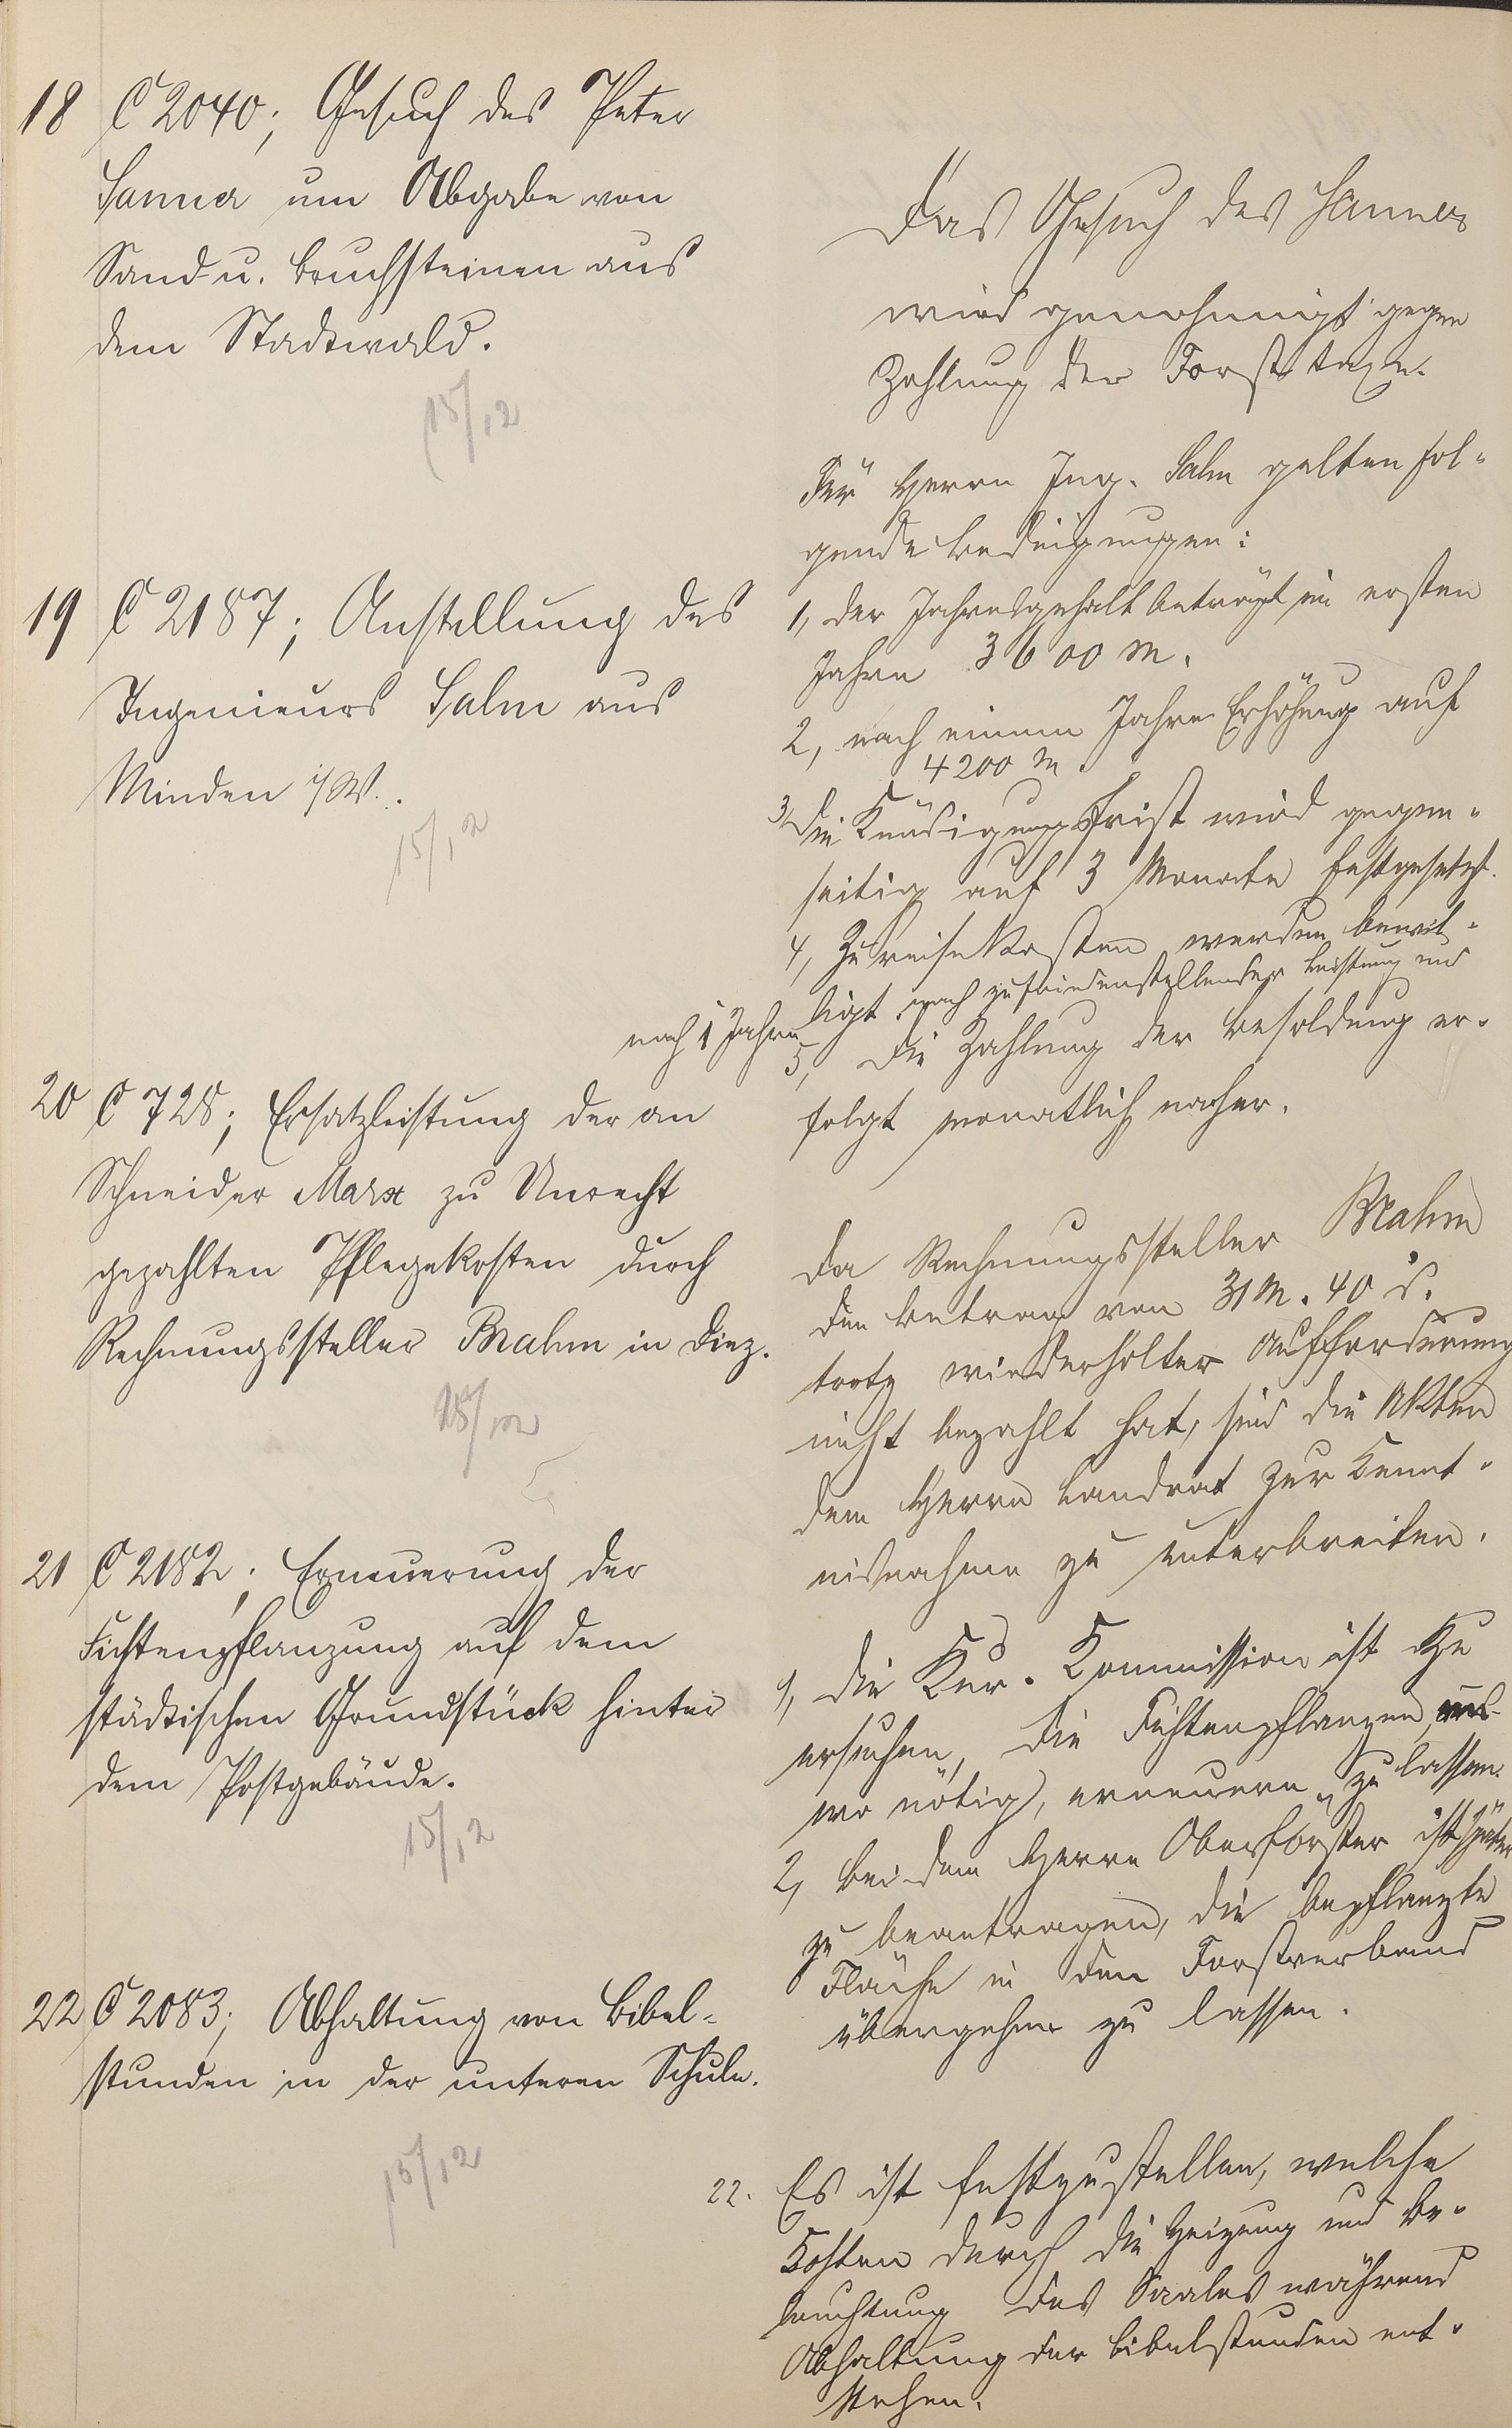 18 C 2040; Gesuch des Peter
Sanner um Abgabe von
Sand- u. Bruchsteinen aus
dem Stadtwald.
15/12
Das Gesuch des Sanner
wird genehmigt gegen
Zahlung der Forsttaxe.
19 C 2187; Anstellung des
Ingenieurs Salm aus
Minden i/W.
15/12
Für Herrn Ing. Salm gelten fol-
gende Bedingungen:
1, der Jahresgehalt beträgt im ersten
Jahre 3600 M.
2, nach einem Jahre Erhöhung auf
4200 M.
3, die Kündigungsfrist wird gegen-
seitig auf 3 Monate festgesetzt.
4, Zureisekosten werden bewil-
ligt nach zufriedenstellender Leistung und
nach 1 Jahre
5, die Zahlung der Besoldung er-
folgt monatlich nachher.
20 C 728; Ersatzleistung der an
Schneider Marx zu Unrecht
gezahlten Pflegekosten durch
Rechnungssteller Brahm in Diez.
15/12
Da Rechnungssteller Brahm
den Betrag von 31 M. 40 d.
trotz wiederholter Aufforderung
nicht bezahlt hat, sind die Akten
dem Herrn Landrat zur Kennt-
nisnahme zu unterbreiten.
21 C 2182; Erneuerung der
Fichtenpflanzung auf dem
städtischen Grundstück hinter
dem Postgebäude.
15/12
1, die Kur-Kommission ist zu
ersuchen, die Fichtenpflanzen,
wo nötig, erneuern zu lassen.
2, bei dem Herrn Oberförster ist später
zu beantragen, die bepflanzte
Fläche in den Forstverband
übergehen zu lassen.
22 C 2083; Abhaltung von Bibel-
stunden in der unteren Schule.
15/12
22. Es ist festzustellen, welche
Kosten durch die Heizung und Be-
leuchtung des Saales während
Abhaltung der Bibelstunden ent-
stehen.